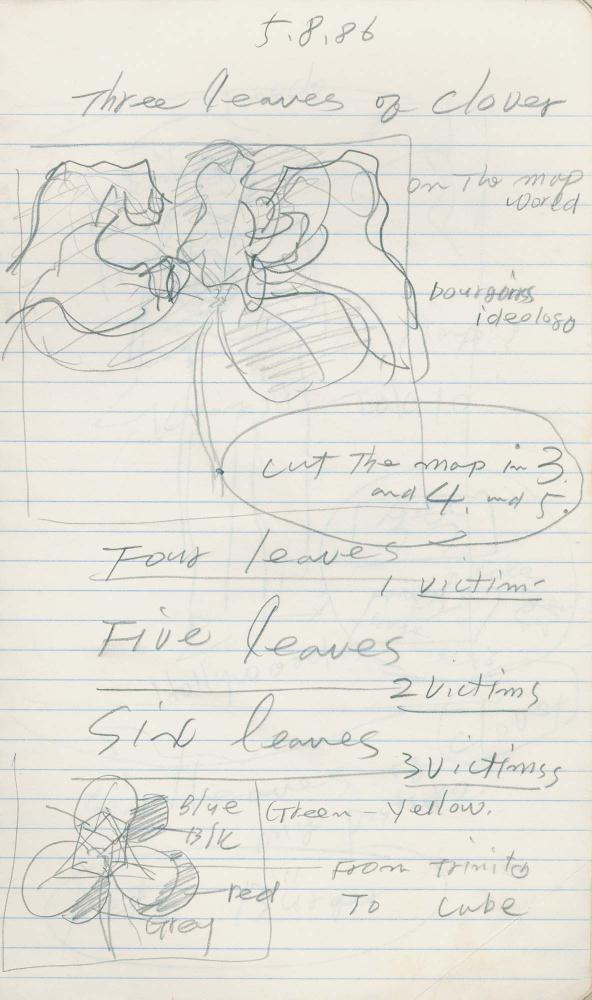 5.8.86
Three leaves of clover
on The map
world
bourgoins
ideologo
cut The map in 3
and 4, and 5.
Four leaves
1 victim
Five leaves
2 victims
Six leaves
3 victimss
Blue
Blk
Green - Yellow.
red
Gray
From Trinito
To cube